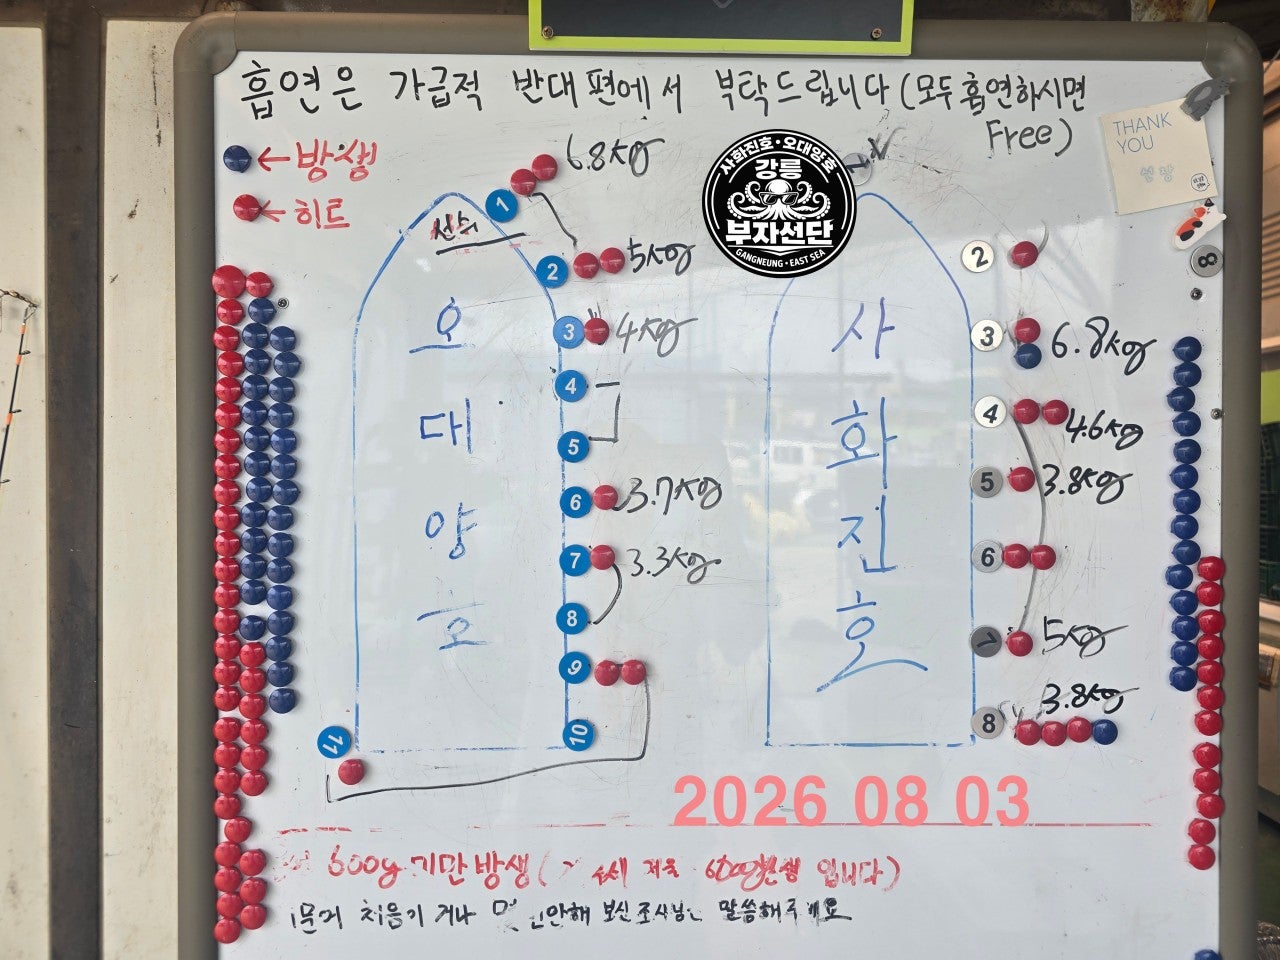 흡연은 가급적 반대편에서 부탁드립니다 (모두 흡연하시면
Free)
THANK
YOU
←방생
←히트
사화진호·오대양호
강릉
부자선단
GANGNEUNG·EAST SEA
선수
오
대
양
호
1 6.8Kg
2 5Kg
3 4Kg
4
5
6 3.7Kg
7 3.3Kg
8
9
10
11
사
화
진
호
2
3 6.8Kg
4 4.6Kg
5 3.8Kg
6
7 5Kg
8 3.8Kg
8
2026 08 03
600g 기만방생 ( 입니다)
처음이거나 말씀해주세요